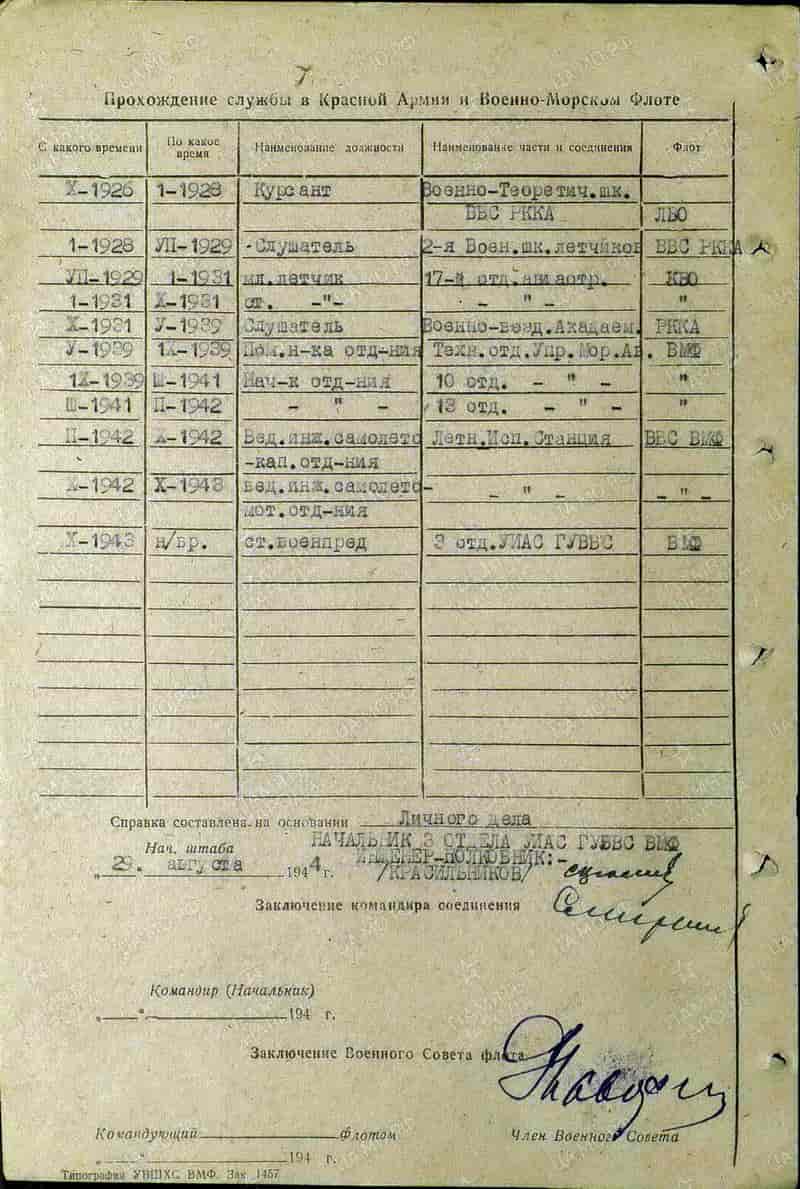 7.
Прохождение службы в Красной Армии и Военно-Морском Флоте
С какого времени По какое время Наименование должности Наименование части и соединения Флот
X-1926 1-1928 Курсант Военно-Теоретич.шк.
ВВС РККА ЛВО
1-1928 УП-1929 -Слушатель 2-я Воен.шк.летчиков ВВС РККА
УП-1929 1-1931 мл.летчик 17-й отд. КВО
1-1931 X-1931 ст. -"- - " - "
X-1931 У-1939 Слушатель Военно-возд.Академ. РККА
У-1939 1X-1939 Пом.н-ка отд-ния Техн.отд.Упр.Мор.Ав. ВМФ
1X-1939 Ш-1941 Нач-к отд-ния 10 отд. - " - "
Ш-1941 П-1942 - " - 13 отд. - " - "
П-1942 X-1942 Вед.инж.самолето Летн.Исп.Станция ВВС ВМФ
-кап.отд-ния
X-1942 X-1943 вед.инж.самолето- - " - - " -
мот.отд-ния
X-1943 н/вр. ст.военпред 3 отд.УИАС ГУВВС ВМФ
Справка составлена на основании Личного дела
Нач. штаба НАЧАЛЬНИК 3 ОТДЕЛА УИАС ГУВВС ВМФ
ИНЖЕНЕР-ПОЛКОВНИК:-
„ 29. августа 1944 г. /КРАСИЛЬНИКОВ/
Заключение командира соединения
Командир (Начальник)
„ " 194 г.
Заключение Военного Совета флота
Командующий Флотом Член Военного Совета
„ 194 г.
Типография УВШХС ВМФ. Зак 1457